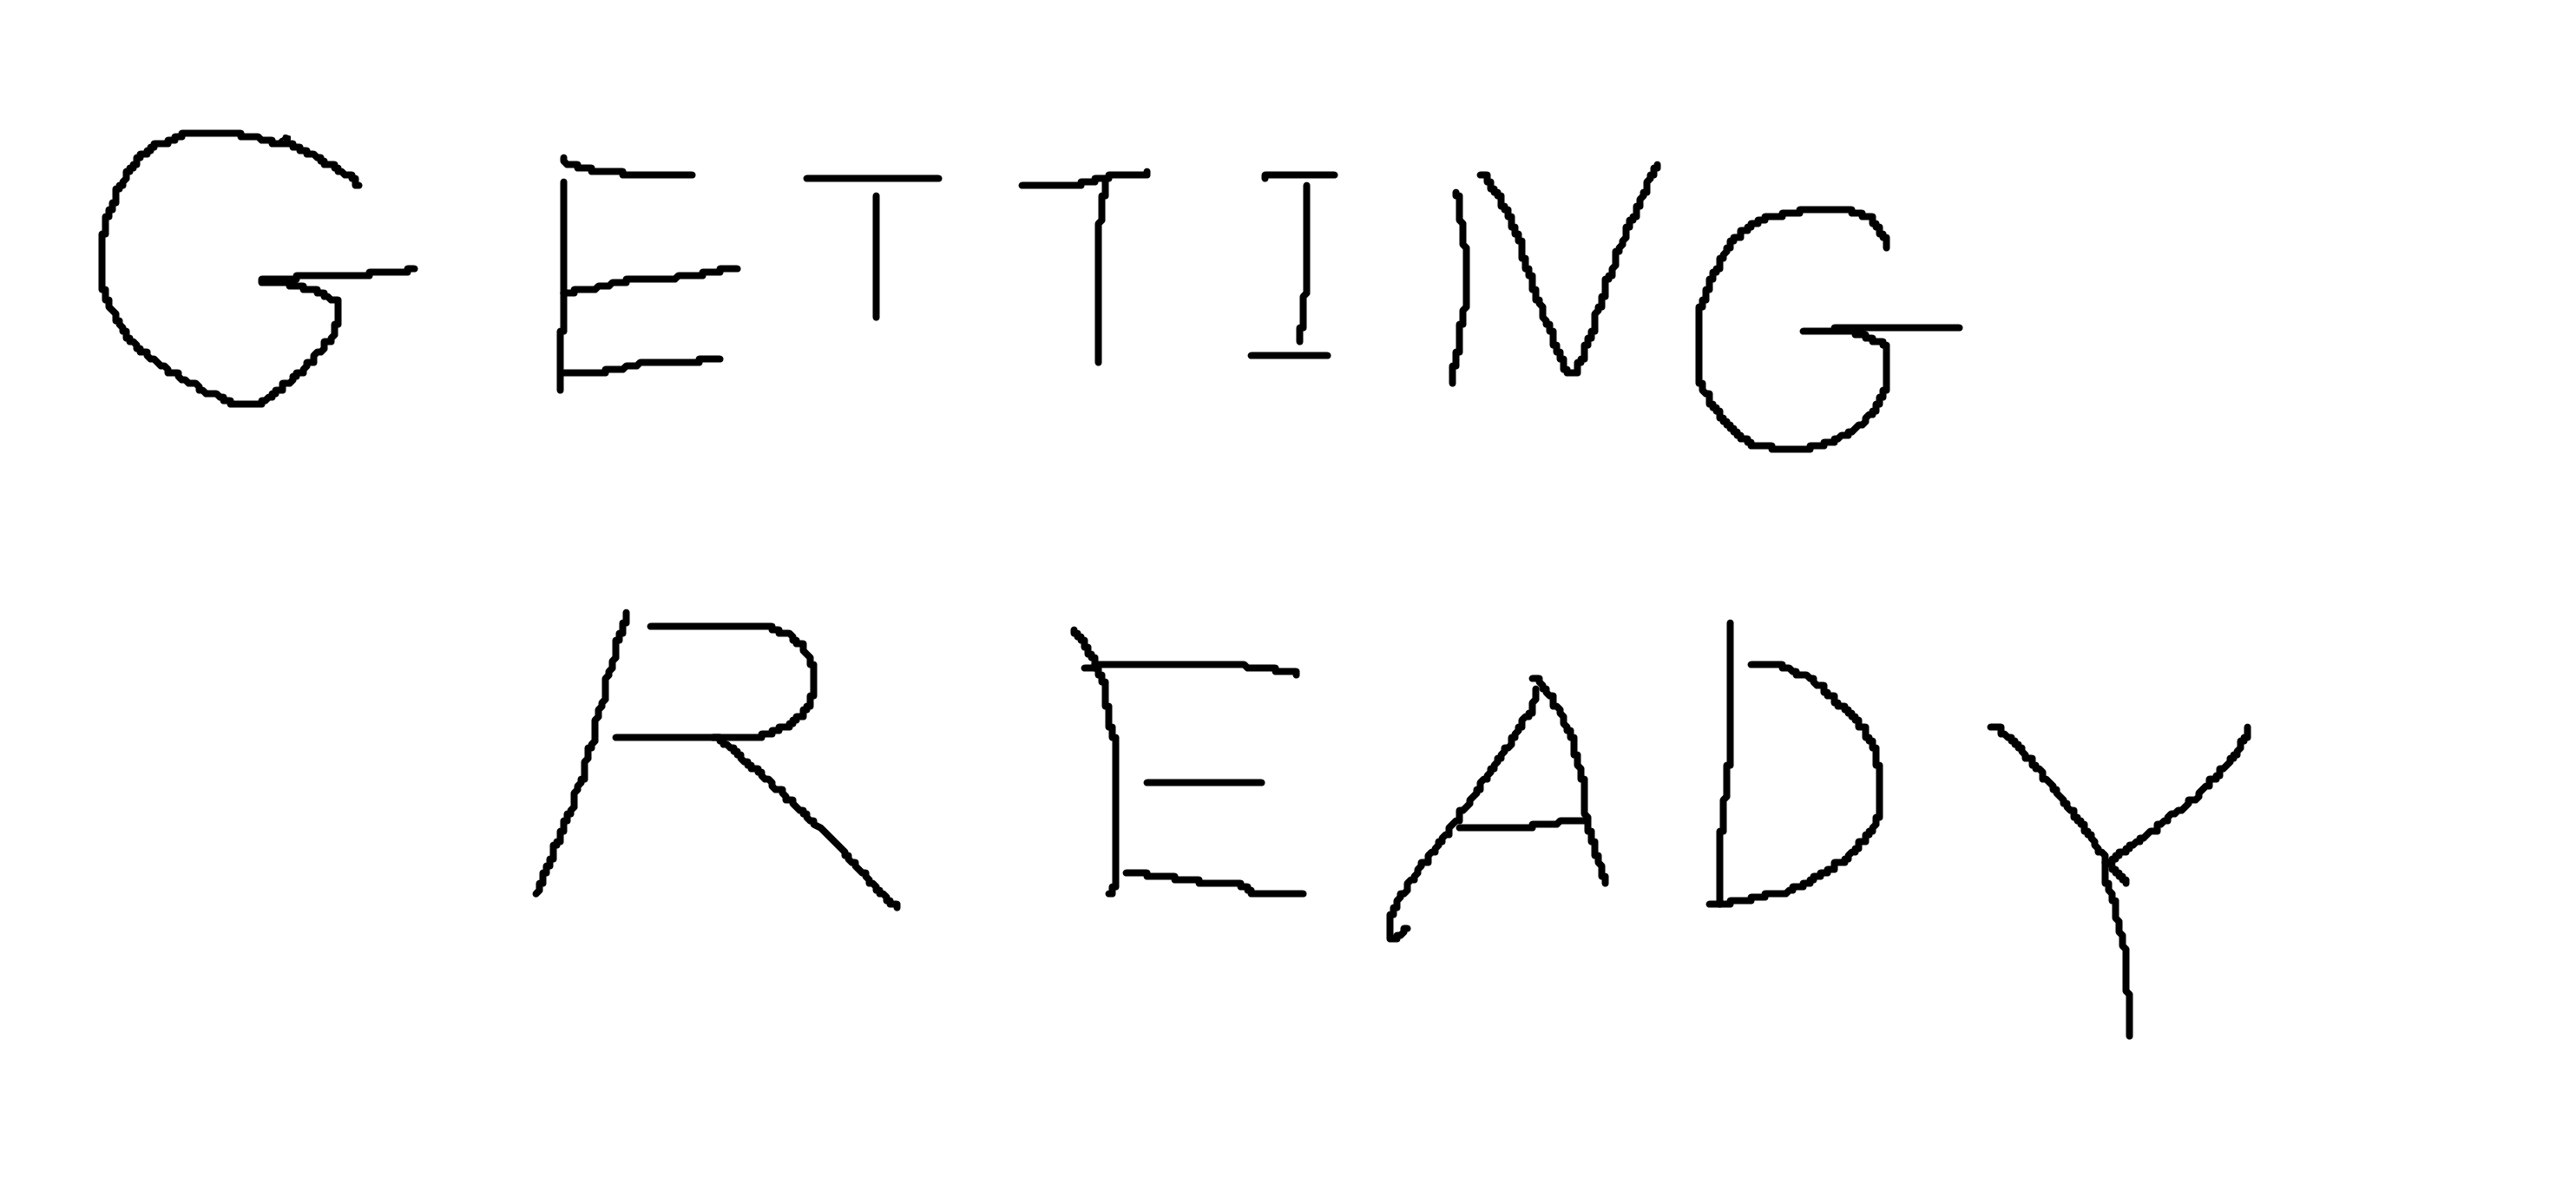 GETTING
READY